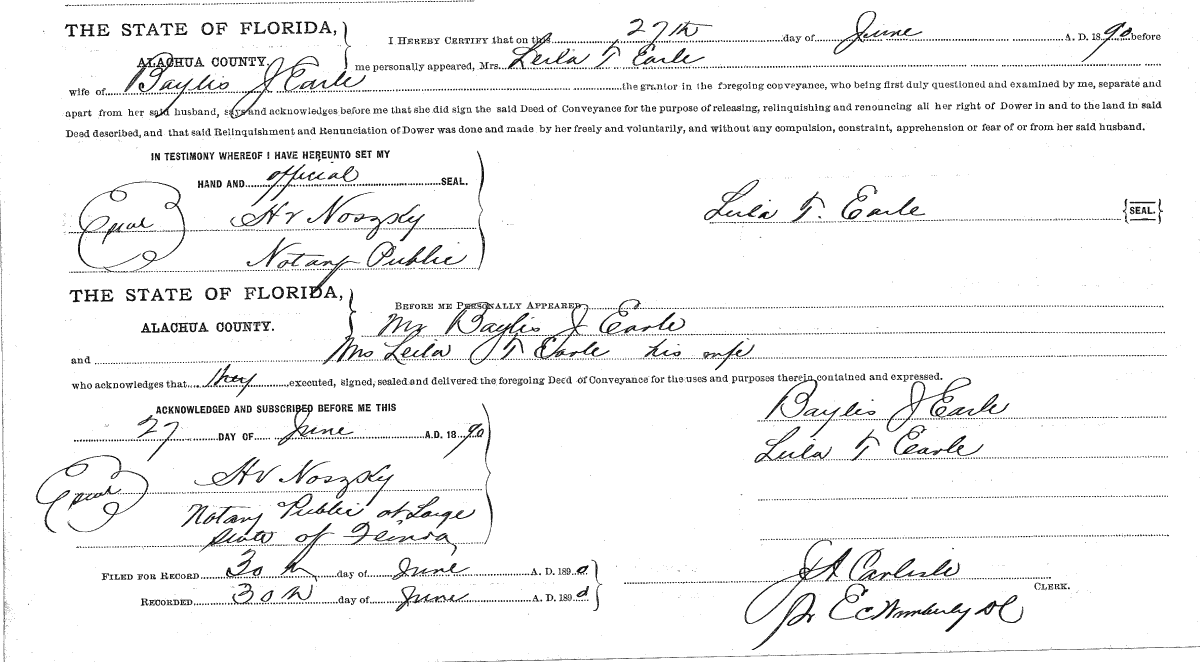 THE STATE OF FLORIDA,
ALACHUA COUNTY.
I HEREBY CERTIFY that on this 27th day of June A. D. 1890 before
me personally appeared, Mrs. Leila T Earle
wife of Baylis J Earle the grantor in the foregoing conveyance, who being first duly questioned and examined by me, separate and
apart from her said husband, says and acknowledges before me that she did sign the said Deed of Conveyance for the purpose of releasing, relinquishing and renouncing all her right of Dower in and to the land in said
Deed described, and that said Relinquishment and Renunciation of Dower was done and made by her freely and voluntarily, and without any compulsion, constraint, apprehension or fear of or from her said husband.
IN TESTIMONY WHEREOF I HAVE HEREUNTO SET MY
HAND AND official SEAL.
HV Noszky
Notary Public
Leila T. Earle {SEAL.}
THE STATE OF FLORIDA,
ALACHUA COUNTY.
BEFORE ME PERSONALLY APPEARED
Mr Baylis J Earle
and Mrs Leila T Earle his wife
who acknowledges that they executed, signed, sealed and delivered the foregoing Deed of Conveyance for the uses and purposes therein contained and expressed.
ACKNOWLEDGED AND SUBSCRIBED BEFORE ME THIS
27 DAY OF June A.D. 1890
HV Noszky
Notary Public at Large
State of
Baylis J Earle
Leila T Earle
FILED FOR RECORD 30 day of June A. D. 1890
RECORDED 30 day of June A. D. 1890
Carlisle CLERK.
Wimberly DC